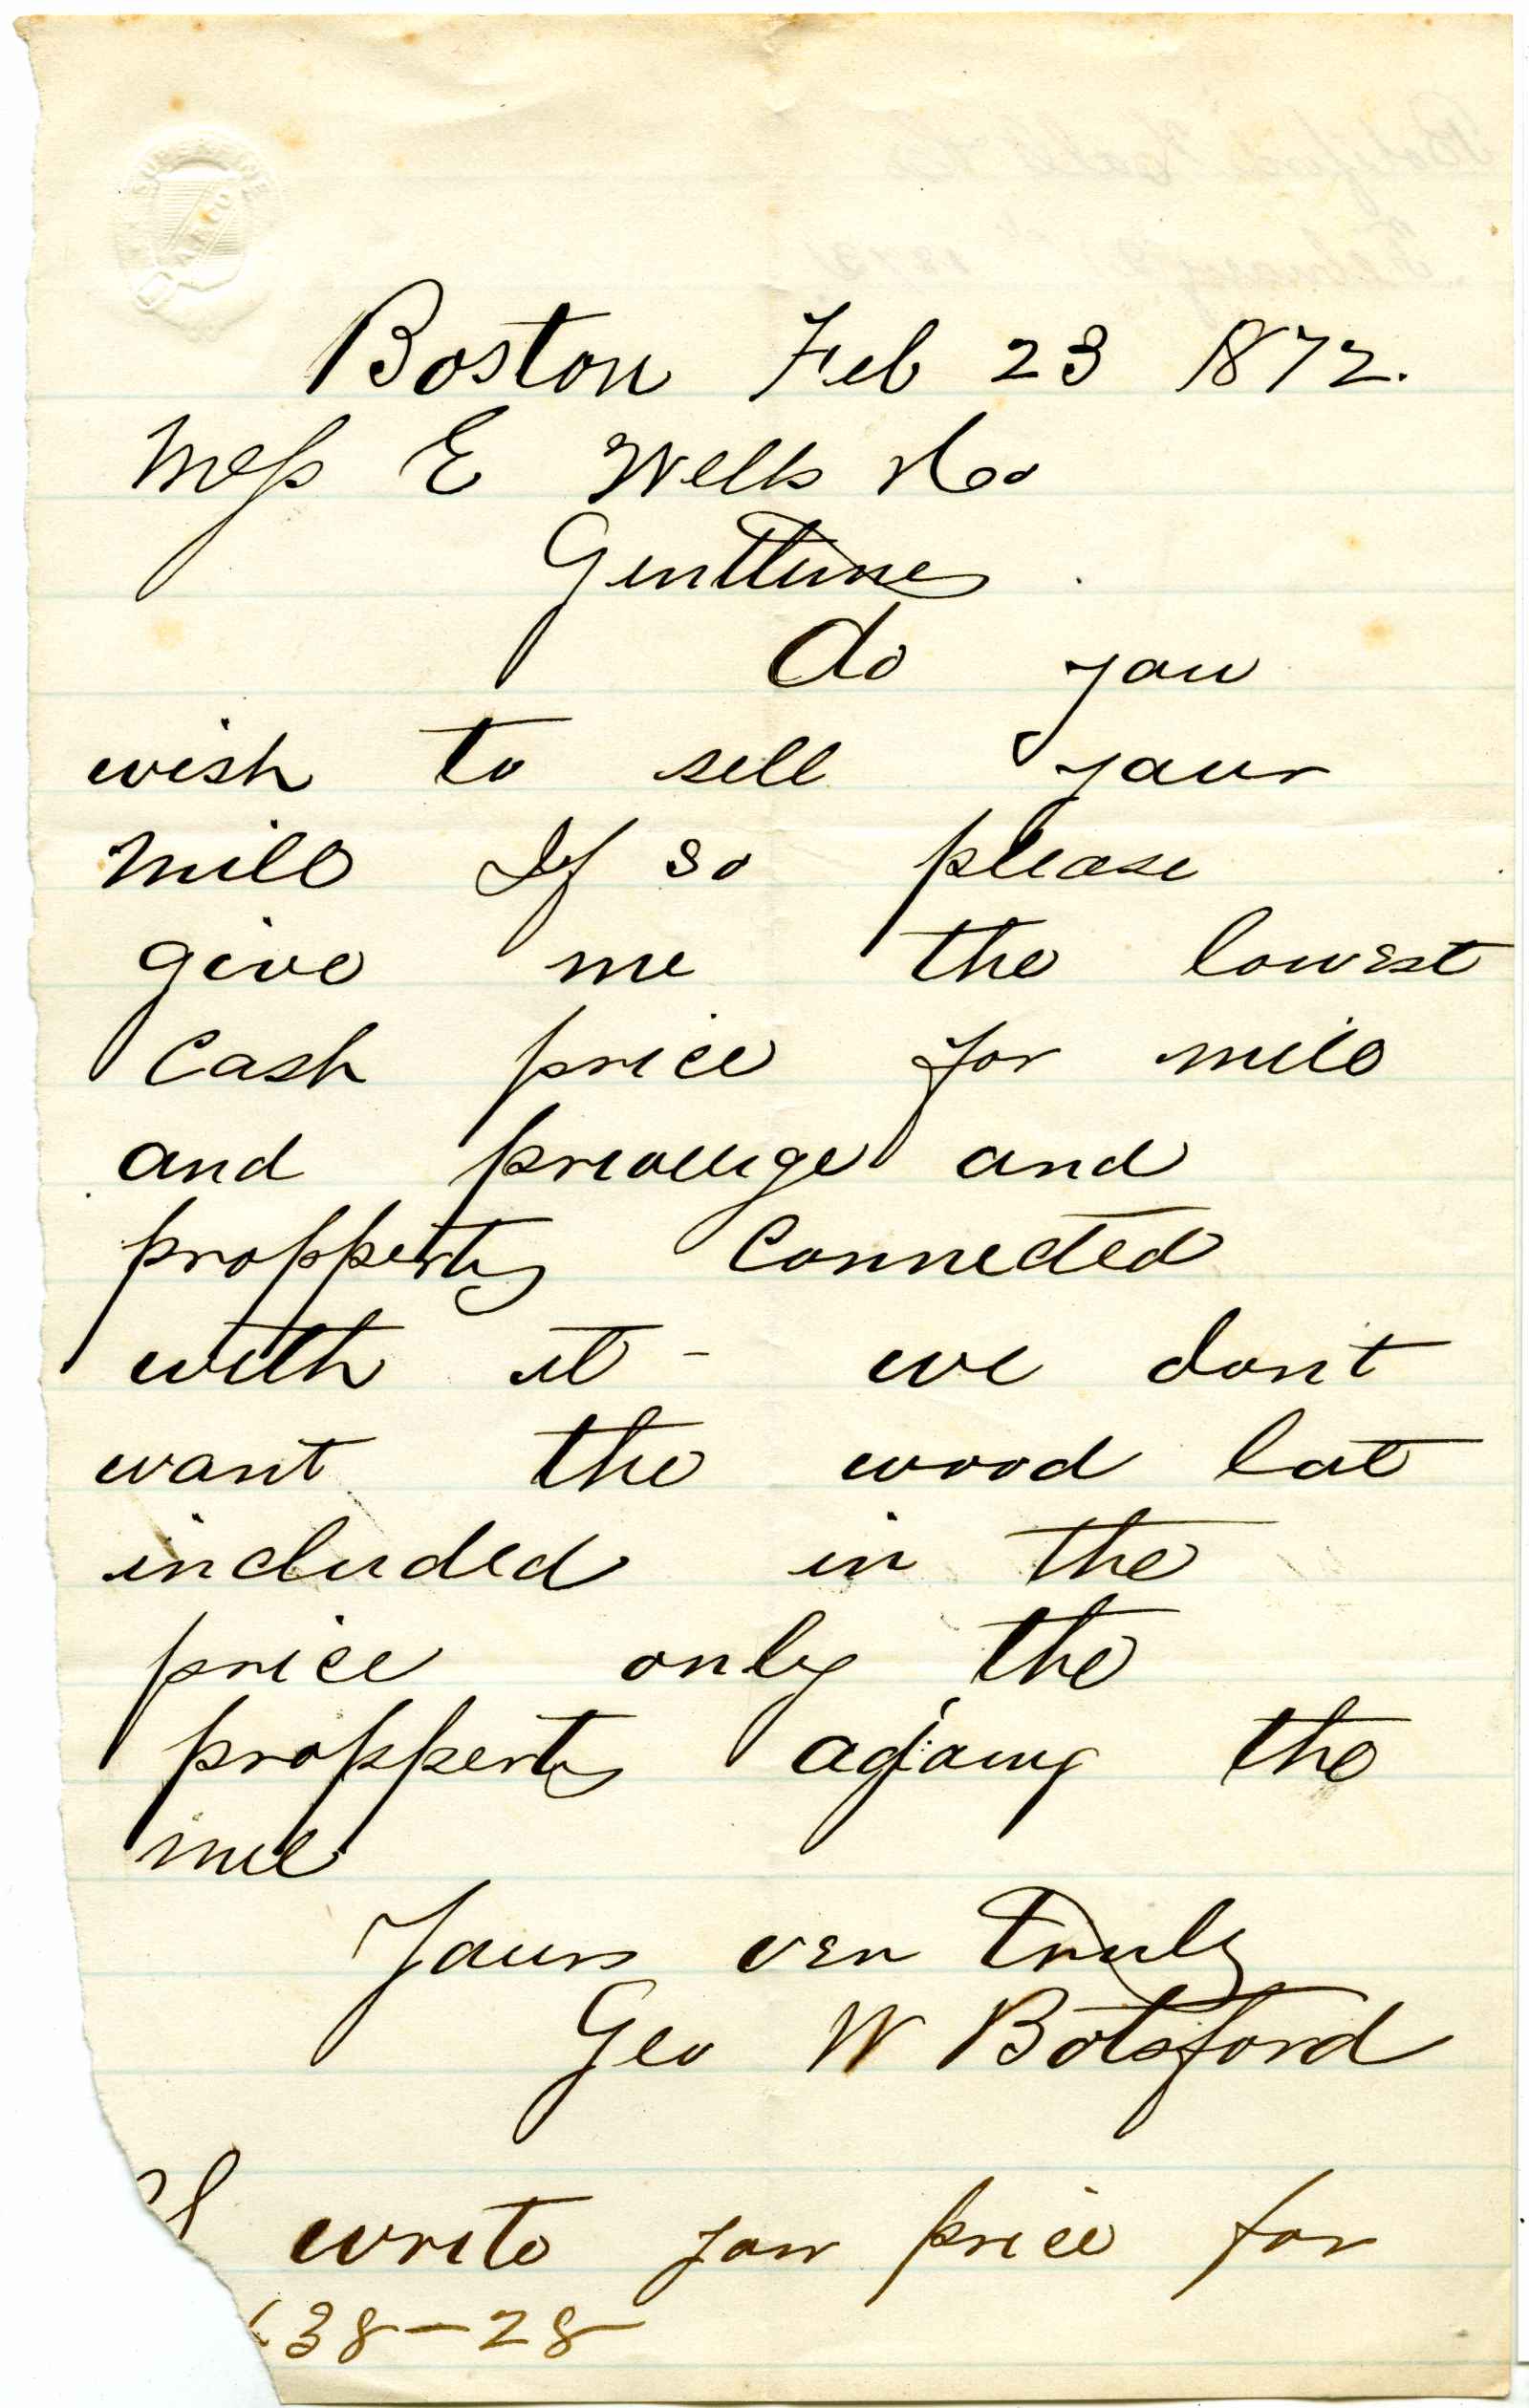 Boston Feb 23 1872.
Mess E Wells & Co
Genttlme
do you
wish to sell your
mill If so please
give me the lowest
Cash price for mill
and privelige and
propperty Connected
with it - we dont
want the wood lot
included in the
price only the
propperty the
mill
Yours ver truly
Geo W Botsford
write your price for
38-28